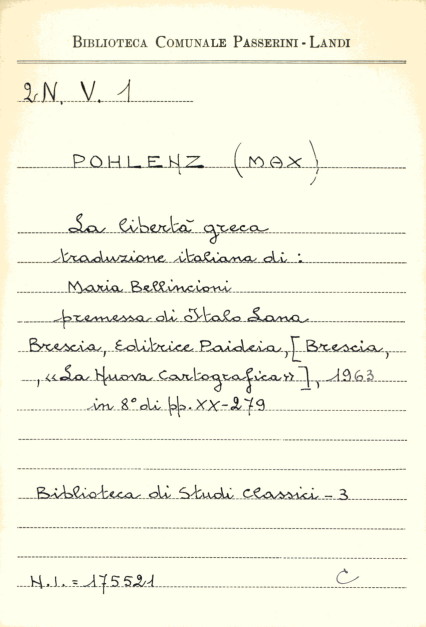 BIBLIOTECA COMUNALE PASSERINI - LANDI
2N. V. 1
POHLENZ (MAX)
La libertà greca
traduzione italiana di :
Maria Bellincioni
premessa di Italo Lana
Brescia, Editrice Paideia, [Brescia,
, «La Nuova Cartografica»], 1963
in 8° di pp. XX-279
Biblioteca di Studi Classici - 3
N.I. = 175521 C